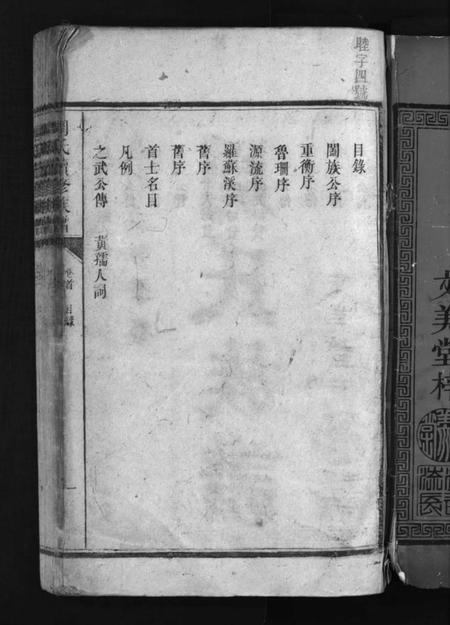 睦字四號
目錄
闔族公序
重衡序
魯珊序
源流序
羅蘇溪序
舊序
舊序
首士名目
凡例
之武公傳 黃孺人詞
卷首 目錄
一
美堂梓